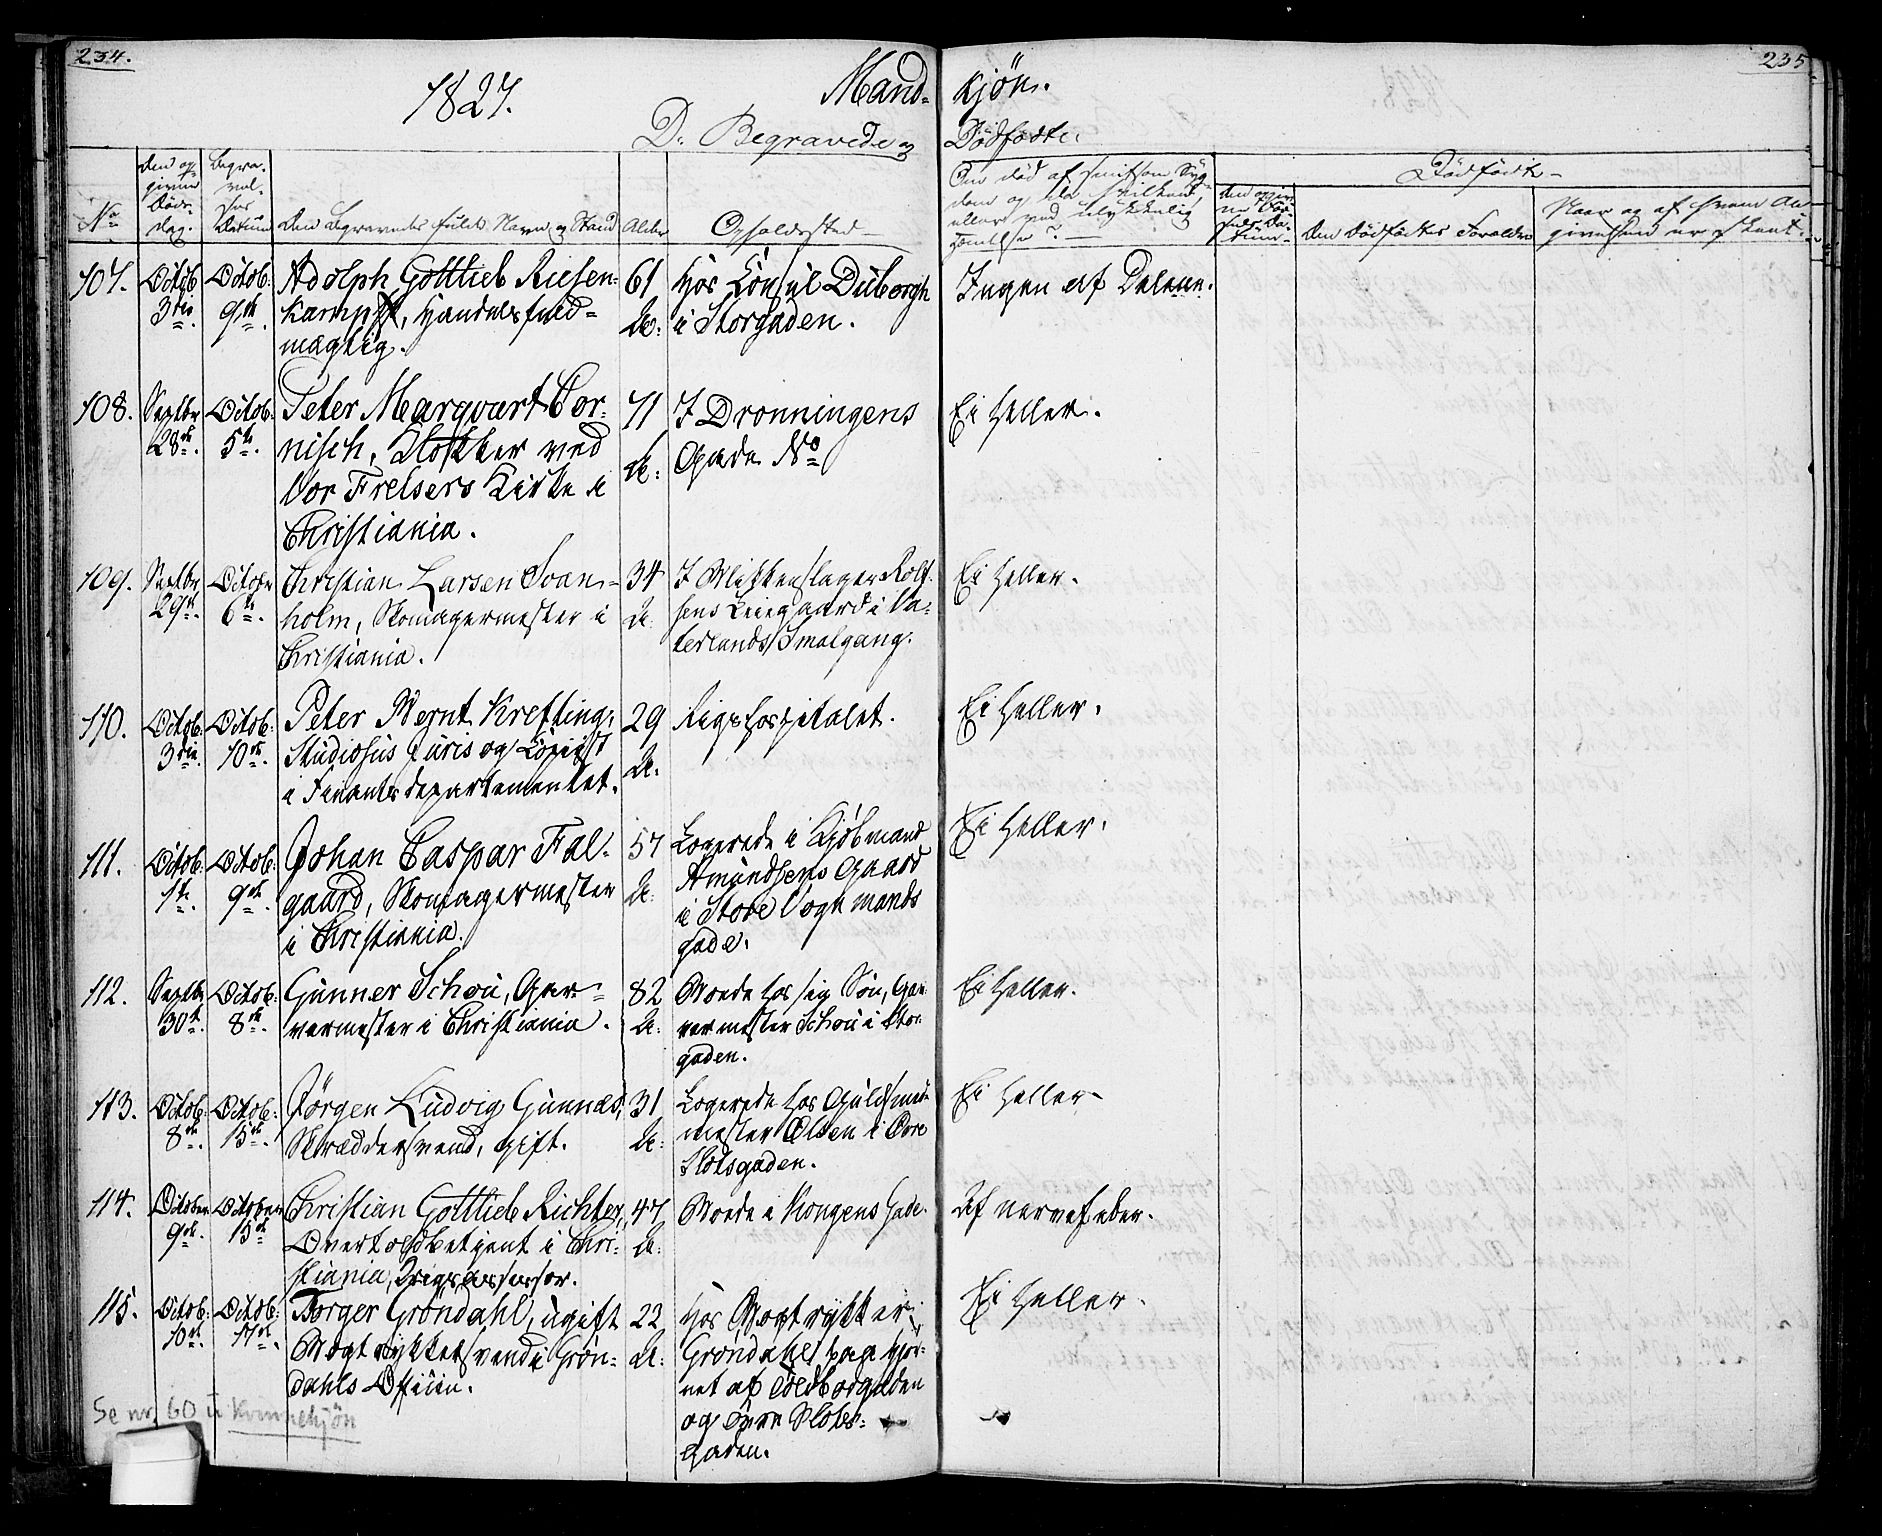 234.
235
1827.
Mand-
kjøn.
D. Begravede og
Dødfødte.
No
Den op-
givne
Døds-
dag.
Begra-
vel-
ses
Datum
Den Begravedes fulde Navn og Stand
Alder
Opholdssted
Om død af smitsom Syg-
dom og da hvilken?
eller ved ulykkelig
Hændelse?
Dødfødte
Den Dødfødtes Forældre
Naar og af hvem An-
givelsen er skeet.
107.
Octob.
3die
Octob.
9de.
Adolph Gottlieb Riesen-
kampff, Handelsfuld-
mægtig.
61
Hos Consul Duborgh
i Storgaden.
Ingen af Delene.
108.
Septbr
28de.
Octob.
5te.
Peter Marqvart Cor-
nisch, Klokker ved
Vor Frelsers Kirke i
Christiania.
71
I Dronningens
Gade No
Ei heller.
109.
Septbr
29de.
Octobr
6te.
Christian Larsen Svan-
holm, Skomagermester i
Christiania.
34
I Blikkenslager Rolf-
sens Leiegaard i Va-
terlands Smalgang.
Ei heller.
110.
Octob.
3die.
Octob.
10de.
Peter Bernt Krefting,
Studiosus juris og Copiist
i Finantsdepartementet.
29
Rigshospitalet.
Ei heller.
111.
Octob.
1te.
Octob.
9de.
Johan Caspar Fal-
gaard, Skomagermester
i Christiania.
57
Logerede i Kjøbmand
Amundsens Gaard
i Store Vognmands
gade.
Ei heller.
112.
Septbr
30te.
Octob.
8de.
Gunner Schou, Gar-
vermester i Christiania.
82
Boede hos sig Søn, Gar-
vermester Schou i Stor-
gaden.
Ei heller.
113.
Octob.
8de.
Octob.
15de.
Jørgen Ludvig Gunnes,
Skræddersvend, gift.
31
Logerede hos Guldsmed-
mester Olsen i Øvre
Slotsgaden.
Ei heller
114.
October
9de.
October
15de
Christian Gottlieb Richter,
Overtoldbetjent i Chri-
stiania, Krigsassessor.
47
Boede i Kongens Gade.
Af nervefeber.
115.
Octob.
10de.
Octob.
17de.
Borger Grøndahl, ugift
Bogtrykkersvend i Grøn-
dahls Officin.
22
Hos Bogtrykker
Grøndahl paa Hjør-
net af Toldbodgaden
og Øvre Slots-
gaden.
Ei heller.
Se nr. 60 u kvinnekjøn